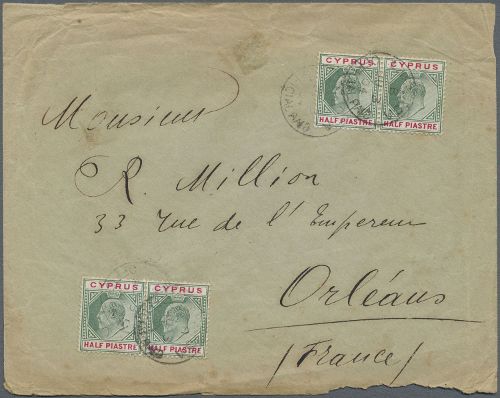 CYPRUS CYPRUS
HALF PIASTRE HALF PIASTRE
Monsieur
R. Million
33 rue de l'Empereur
Orléans
(France)
CYPRUS CYPRUS
HALF PIASTRE HALF PIASTRE